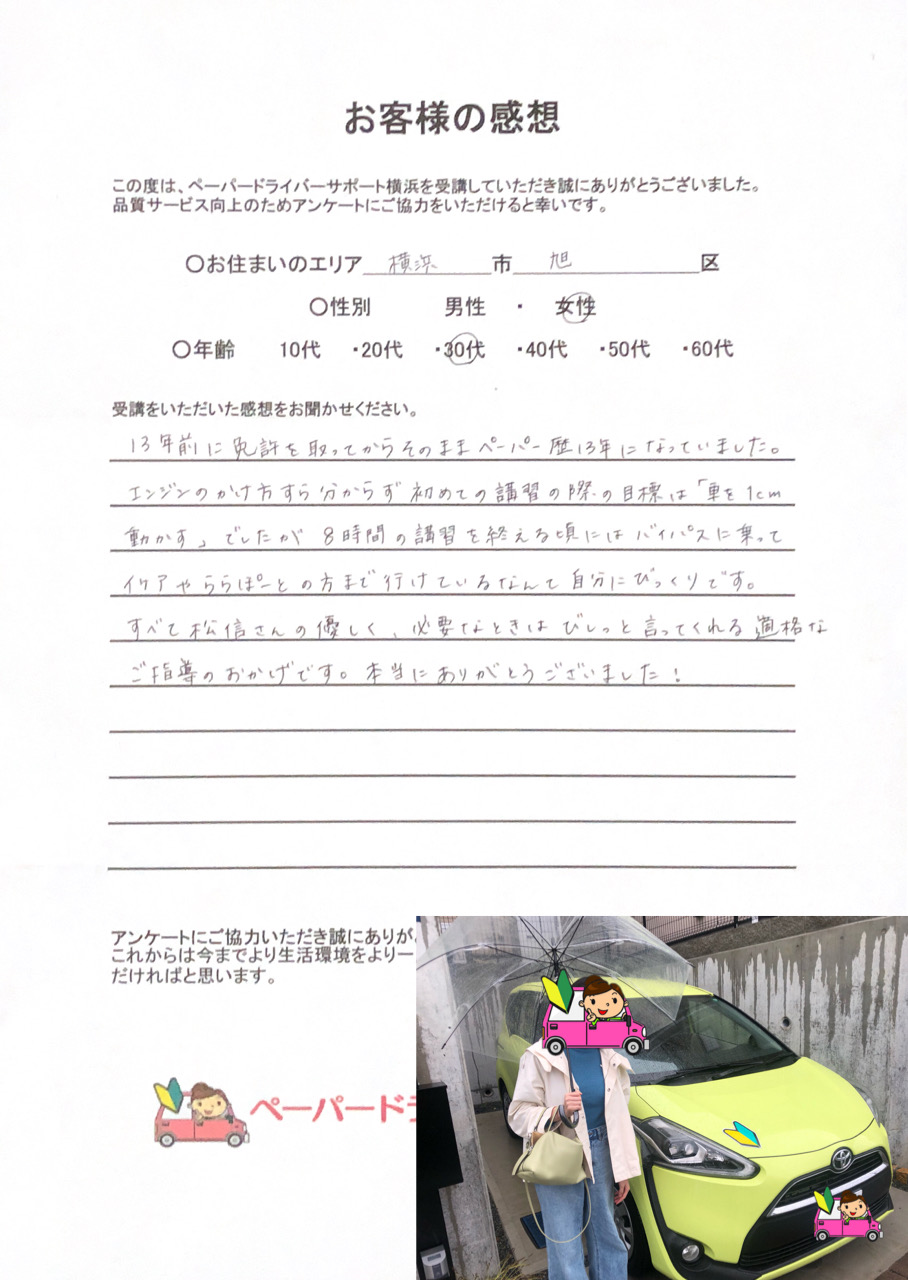 お客様の感想
この度は、ペーパードライバーサポート横浜を受講していただき誠にありがとうございました。
品質サービス向上のためアンケートにご協力をいただけると幸いです。
〇お住まいのエリア 横浜 市 旭 区
〇性別 男性 ・ 女性
〇年齢 10代 ・20代 ・30代 ・40代 ・50代 ・60代
受講をいただいた感想をお聞かせください。
13年前に免許を取ってからそのままペーパー歴13年になっていました。
エンジンのかけ方すら分からず初めての講習の際の目標は「車を1cm
動かす」でしたが8時間の講習を終える頃にはバイパスに乗って
イケアやららぽーとの方まで行けているなんて自分にびっくりです。
すべて松信さんの優しく、必要なときはびしっと言ってくれる適格な
ご指導のおかげです。本当にありがとうございました!
アンケートにご協力いただき誠にありが
これからは今までより生活環境をより一
だければと思います。
ペーパード